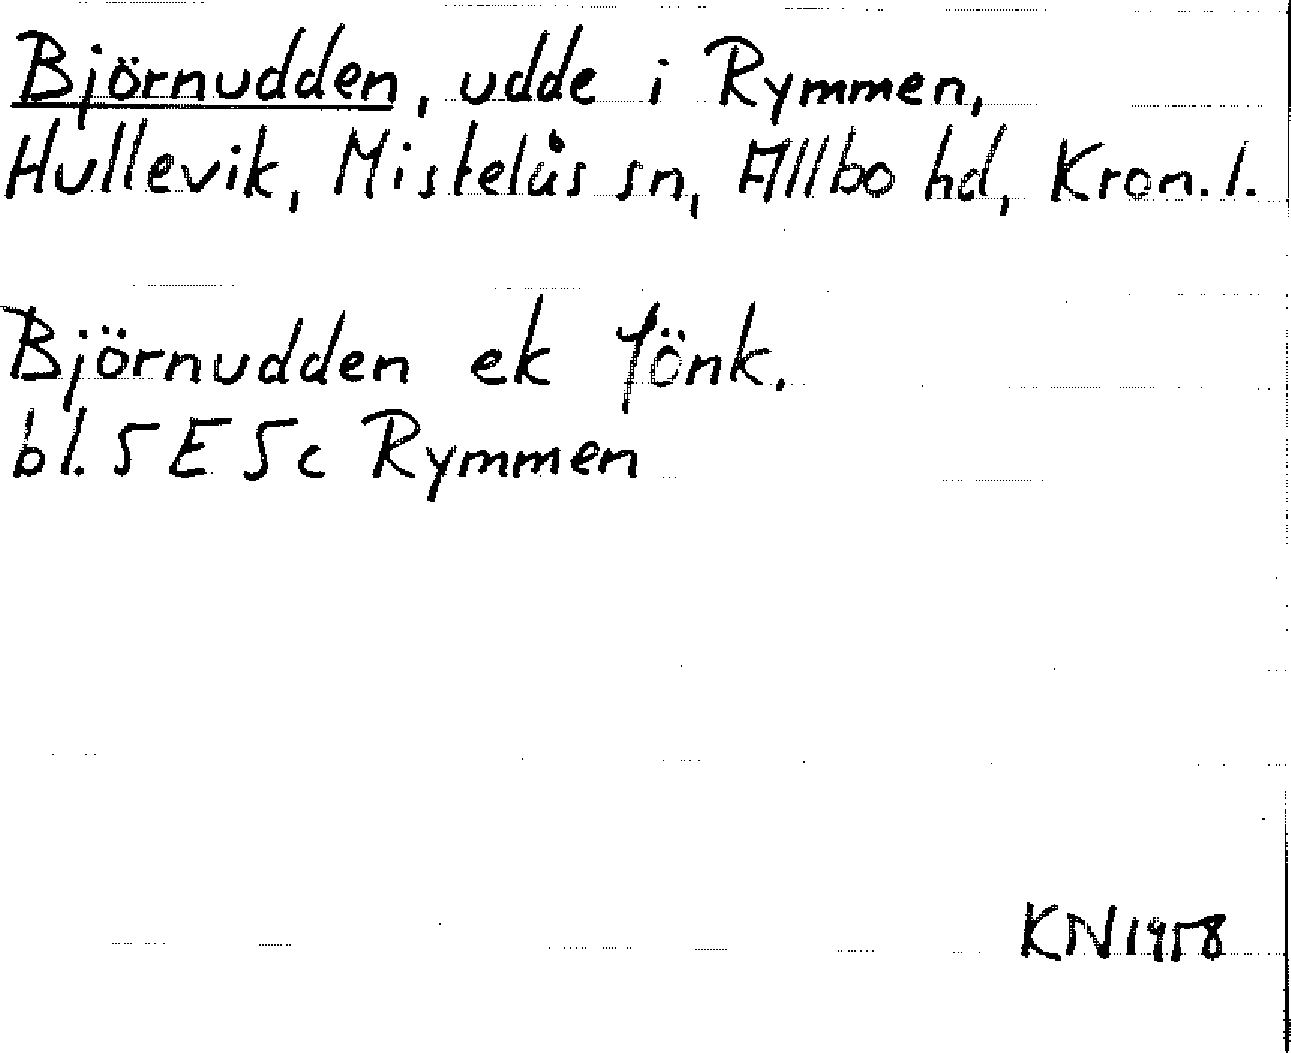 Björnudden, udde i Rymmen,
Hullevik, Mistelås sn, Allbo hd, Kron. l.
Björnudden ek Jönk.
bl. 5 E 5c Rymmen
KN 1958